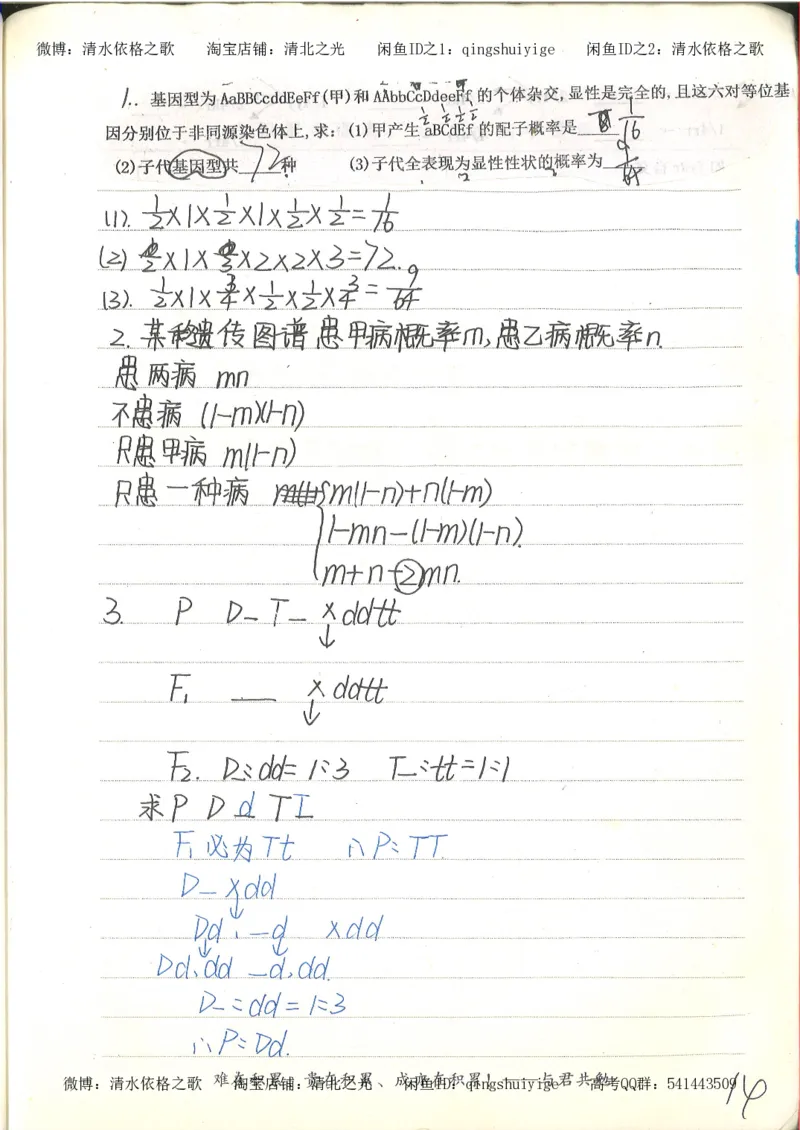 微博：清水依格之歌 淘宝店铺：清北之光 闲鱼ID之1：qingshuiyige 闲鱼ID之2：清水依格之歌
1. 基因型为 AaBBCcddEeFf(甲)和 AAbbCcDdeeFf 的个体杂交,显性是完全的,且这六对等位基
因分别位于非同源染色体上,求： (1)甲产生 aBCdEf 的配子概率是 1/16
(2)子代基因型共 72 种 (3)子代全表现为显性性状的概率为 9/64
(1). 1/2×1×1/2×1×1/2×1/2=1/16
(2) 2×1×3×2×2×3=72.
(3). 1/2×1×3/4×1/2×1/2×3/4=9/64
2. 某种遗传图谱患甲病概率m,患乙病概率n.
患两病 mn
不患病 (1-m)(1-n)
只患甲病 m(1-n)
只患一种病 m(1-n)+n(1-m)
1-mn-(1-m)(1-n).
m+n-2mn.
3. P D_T_×ddtt
↓
F₁ __ ×ddtt
↓
F₂. D_:dd=1:3 T_:tt=1:1
求P D d T T
F₁必为Tt ∴P:TT
D_×dd
↓
Dd、_d ×dd
↓ ↓
Dd、dd _d、dd.
D_:dd=1:3
∴P:Dd.
难在积累、贵在积累、成亦在积累！——与君共勉
微博：清水依格之歌 淘宝店铺：清北之光 闲鱼ID：qingshuiyige 高考QQ群：541443509
14